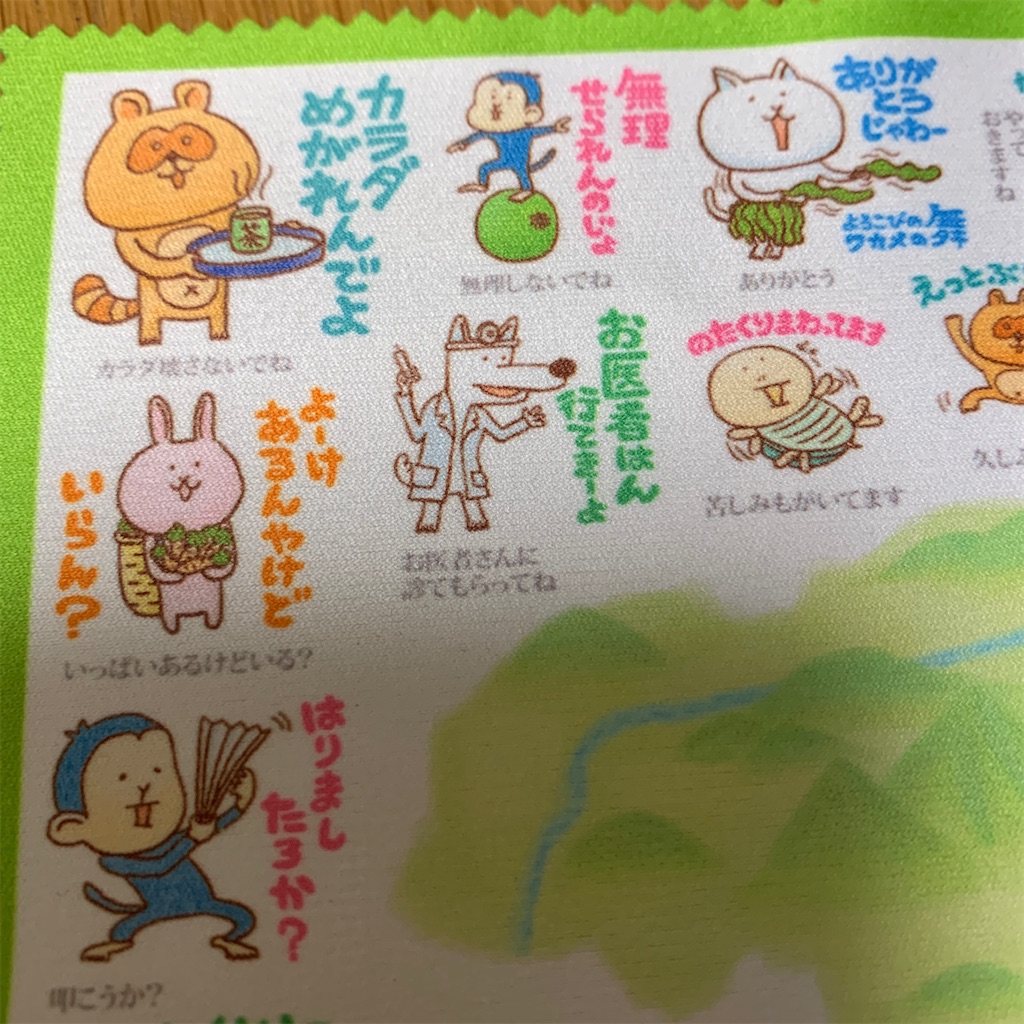 カラダ
めがれんでよ
カラダ壊さないでね
茶
無理
せられんのじょ
無理しないでね
ありが
とう
じゃわー
よろこびの舞
ワカメのタキ
ありがとう
やって
おきますね
よーけ
あるんやけど
いらん?
いっぱいあるけどいる?
お医者はん
行てきーよ
お医者さんに
診てもらってね
のたくりまわってます
苦しみもがいてます
えっとぶ
久しぶ
はりまし
たろか?
叩こうか?